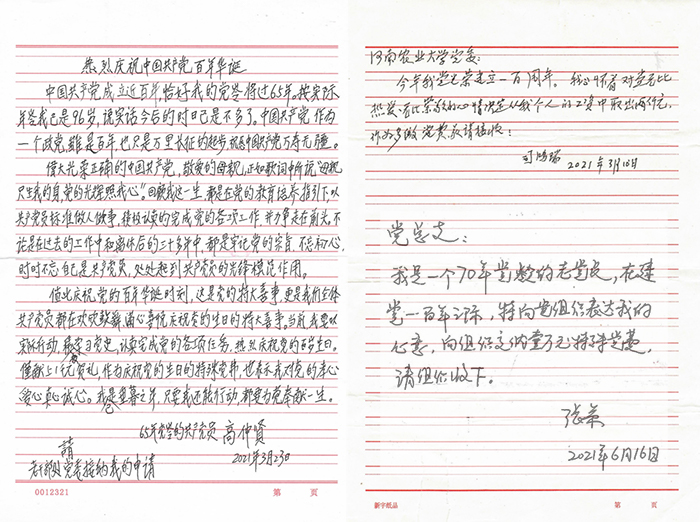 热烈庆祝中国共产党百年华诞
中国共产党成立近百年,恰好我的党龄将过65年。按实际
年岁我已是96岁,说实话今后的时日已是不多了。中国共产党作为
一个政党,虽是百年,也只是万里长征的起步,祝愿中国共产党万寿无疆。
伟大光荣正确的中国共产党,敬爱的母亲,正如歌词中所说"母亲
只生我的身,党的光辉照我心"。回顾我这一生,都是在党的教育培养指引下,以
共产党员标准做人做事,积极认真的完成党的各项工作,并力争走在前头。不
论是在过去的工作中和离休后的三十多年中,都是牢记党的宗旨,不忘初心,
时时不忘自己是共产党员,处处起到共产党员的先锋模范作用。
值此庆祝党的百年华诞时刻,这是党的特大喜事,更是我们全体
共产党员都在欢欣鼓舞,诵心喜悦庆祝党的生日的特大喜事。当前我要以
实际行动,学习党史,认真完成党的各项任务,热烈庆祝党的百岁生日。
仅献上1元贺礼,作为庆祝党的生日的特殊党费,也表示我对党的衷心
爱心真心诚心。我虽是暮之年,只要我还能行动,都要为党奉献一生。
65年党龄的共产党员 高仲贤
2021年3月23日
请
老干部处党委接纳我的申请
0012321 第 页
河南农业大学党委:
今年我党光荣建立一百周年。我心怀着对党无比
热爱、无比荣幸的心情决定从我个人的工资中取出两万元,
作为多缴党费,敬请接收!
司鸿瑞
2021年3月10日
党总支:
我是一个70年党龄的老党员,在建
党一百年之际,特向党组织表达我的
心意,向组织交纳壹万元特殊党费,
请组织收下。
张荣
2021年6月16日
新宇纸品 第 页